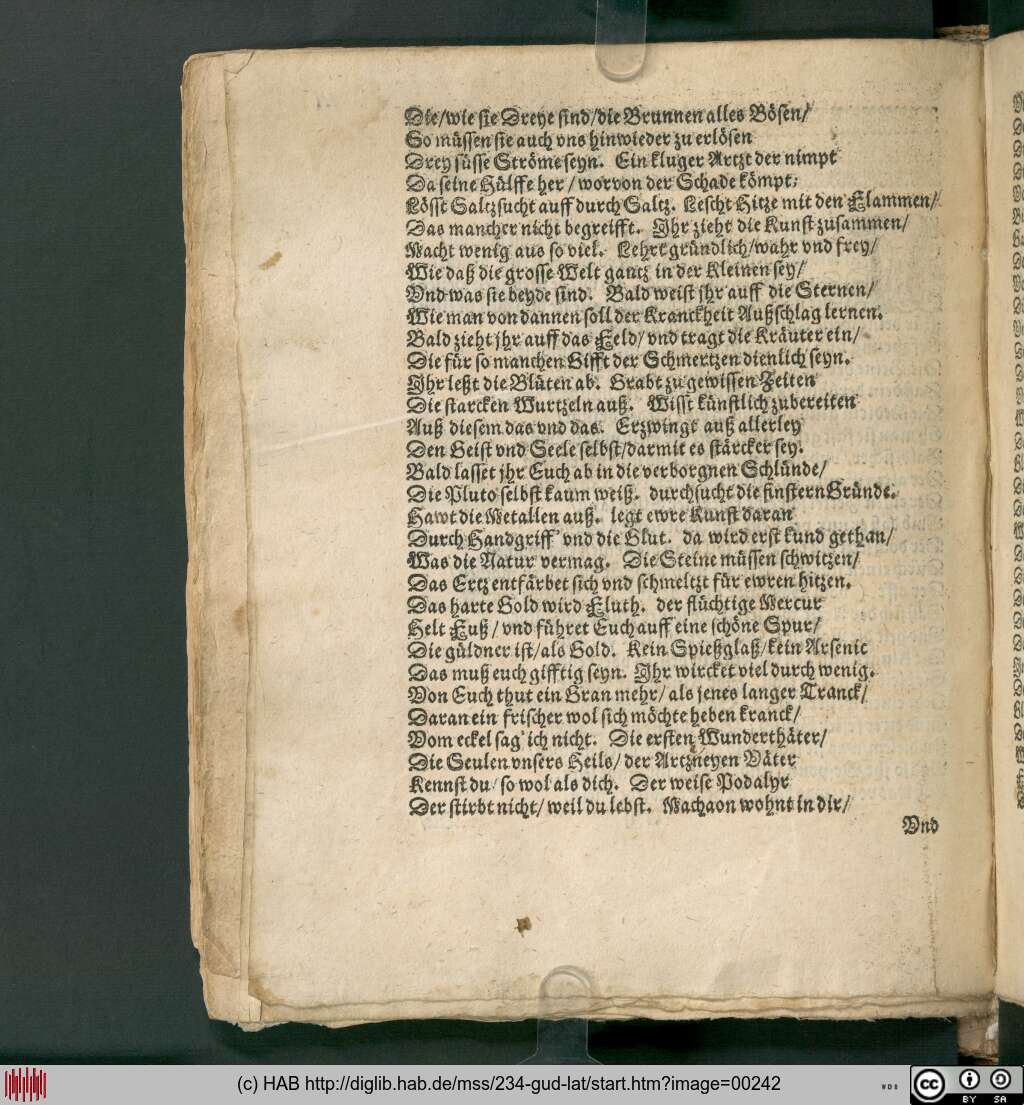 Die/wie sie Dreye sind/die Brunnen alles Bösen/
So müssen sie auch vns hinwieder zu erlösen
Drey süsse Ströme seyn. Ein kluger Artzt der nimpt
Da seine Hülffe her / worvon der Schade kömpt;
Lösst Saltzsucht auff durch Saltz. Lescht Hitze mit den Flammen/
Das mancher nicht begreifft. Jhr zieht die Kunst zusammen/
Macht wenig aus so viel. Lehrt gründlich/wahr vnd frey/
Wie daß die grosse Welt gantz in der Kleinen sey/
Vnd was sie beyde sind. Bald weist jhr auff die Sternen/
Wie man von dannen soll der Kranckheit Außschlag lernen.
Bald zieht jhr auff das Feld/ vnd tragt die Kräuter ein/
Die für so manchen Gifft der Schmertzen dienlich seyn.
Jhr leßt die Blüten ab. Grabt zu gewissen Zeiten
Die starcken Wurtzeln auß. Wisst künstlich zubereiten
Auß diesem das vnd das. Erzwingt auß allerley
Den Geist vnd Seele selbst/darmit es stärcker sey.
Bald lasset jhr Euch ab in die verborgnen Schlünde/
Die Pluto selbst kaum weiß. durchsucht die finstern Gründe.
Hawt die Metallen auß. legt ewre Kunst daran
Durch Handgriff' vnd die Glut. da wird erst kund gethan/
Was die Natur vermag. Die Steine müssen schwitzen/
Das Ertz entfärbet sich vnd schmeltzt für ewren hitzen.
Das harte Gold wird Fluth. der flüchtige Mercur
Helt Fuß / vnd führet Euch auff eine schöne Spur/
Die güldner ist/als Gold. Kein Spießglaß/kein Arsenic
Das muß euch gifftig seyn. Jhr wircket viel durch wenig.
Von Euch thut ein Gran mehr/ als jenes langer Tranck/
Daran ein frischer wol sich möchte heben kranck/
Vom eckel sag' ich nicht. Die ersten Wunderthäter/
Die Seulen vnsers Heils/ der Artzneyen Väter
Kennst du/ so wol als dich. Der weise Podalyr
Der stirbt nicht/ weil du lebst. Machaon wohnt in dir/
Vnd
(c) HAB http://diglib.hab.de/mss/234-gud-lat/start.htm?image=00242
WDB
cc BY SA